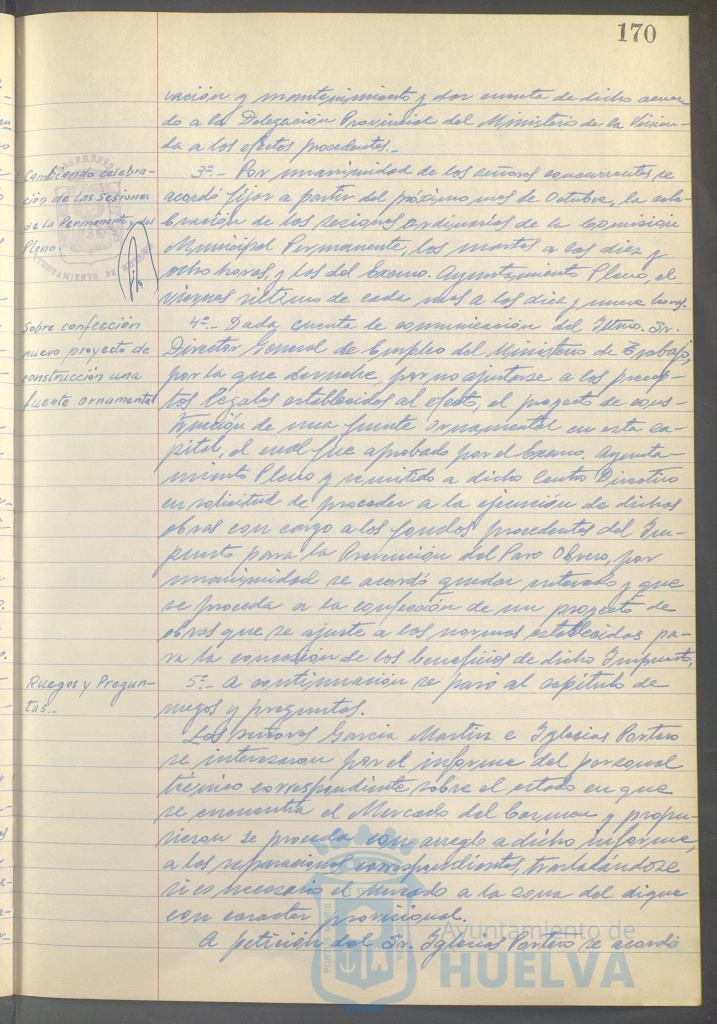 170
vación y mantenimiento y dar cuenta de dicho acuer-
do a la Delegación Provincial del Ministerio de la Vivien-
da a los efectos procedentes.-
Cambiando celebra-
ción de las sesiones
de la Permanente y del
Pleno.-
3º.- Por unanimidad de los señores concurrentes, se
acordó fijar a partir del próximo mes de Octubre, la cele-
bración de las sesiones ordinarias de la Comisión
Municipal Permanente, los martes a las diez y
ocho horas, y las del Excmo. Ayuntamiento Pleno, el
viernes último de cada mes a las diez y nueve horas.
Sobre confección
nuevo proyecto de
construcción una
fuente ornamental
4º.- Dada cuenta de comunicación del Iltmo. Sr.
Director General de Empleo del Ministerio de Trabajo,
por la que devuelve, por no ajustarse a los precep-
tos legales establecidos al efecto, el proyecto de cons-
trucción de una fuente ornamental en esta ca-
pital, el cual fue aprobado por el Excmo. Ayunta-
miento Pleno y remitido a dicho Centro Directivo
en solicitud de proceder a la ejecución de dichas
obras con cargo a los fondos procedentes del Im-
puesto para la Prevención del Paro Obrero, por
unanimidad se acordó quedar enterado y que
se proceda a la confección de un proyecto de
obras que se ajuste a las normas establecidas pa-
ra la concesión de los beneficios de dicho Impuesto.
Ruegos y Pregun-
tas.-
5º.- A continuación se pasó al capítulo de
ruegos y preguntas.
Los señores García Martín e Iglesias Portero
se interesaron por el informe del personal
técnico correspondiente sobre el estado en que
se encuentra el Mercado del Carmen y propu-
sieron se proceda con arreglo a dicho informe,
a las reparaciones correspondientes, trasladándose
si es necesario el Mercado a la zona del dique
con carácter provisional.
A petición del Sr. Iglesias Portero se acordó
Ayuntamiento de
HUELVA